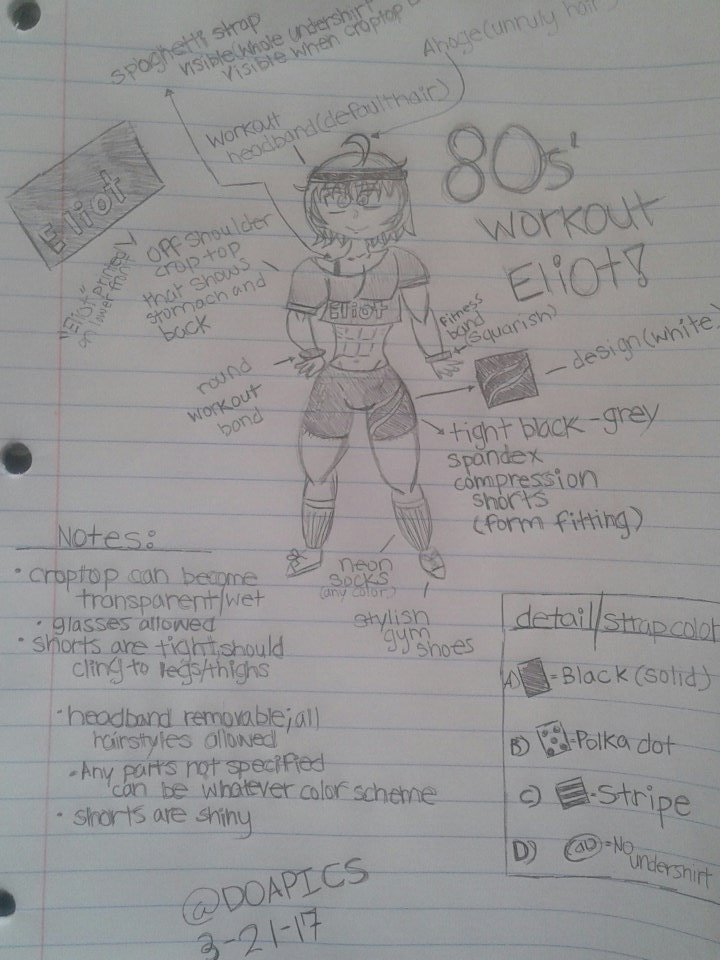 spaghetti strap
visible(whole undershirt
visible when croptop
Ahoge(unruly hair)
workout
headband(default hair)
80s'
workout
Eliot!
Eliot
"Eliot" printed
on lower front
off shoulder
crop top
that shows
stomach and
back
Eliot
fitness
band
(squarish)
design(white)
round
workout
band
tight black-grey
spandex
compression
shorts
(form fitting)
neon
socks
(any color)
stylish
gym
shoes
Notes:
• croptop can become
transparent/wet
• glasses allowed
• shorts are tight;should
cling to legs/thighs
• headband removable;all
hairstyles allowed
• Any parts not specified
can be whatever color scheme
• shorts are shiny
detail/strap color
A) = Black (solid)
B) -Polka dot
C) -Stripe
D) =No
undershirt
@DOAPICS
3-21-17